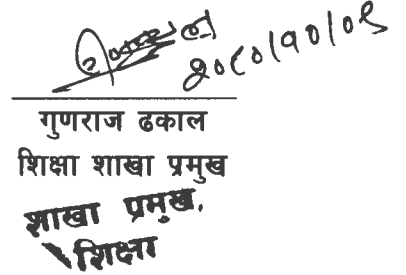 २०८०।१०।०९
गुणराज ढकाल
शिक्षा शाखा प्रमुख
शाखा प्रमुख,
शिक्षा